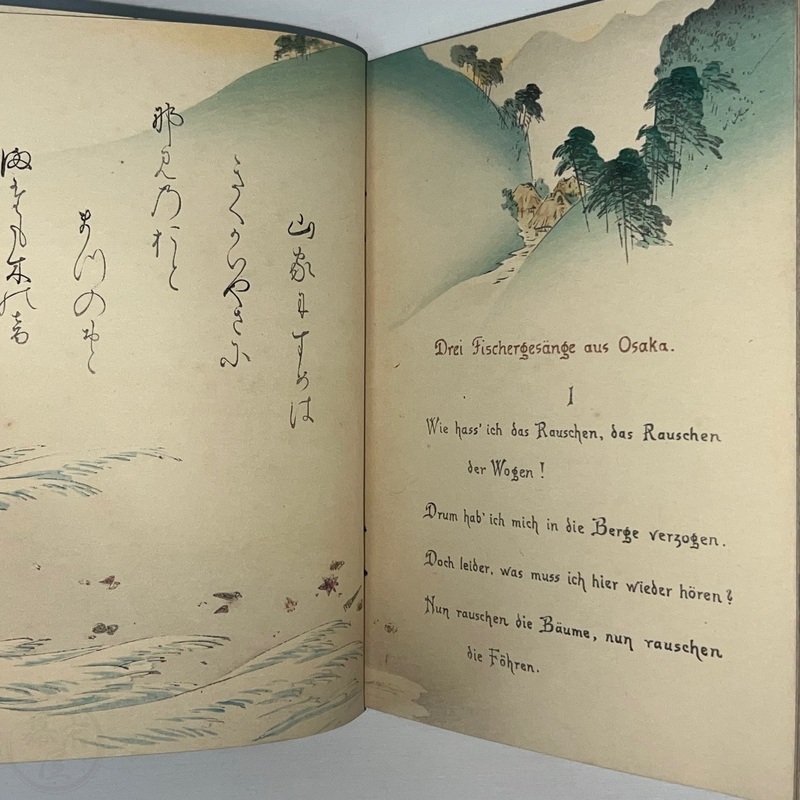 山家にすめは
きくかいやさに
那見乃おと
まつのおと
Drei Fischergesänge aus Osaka.
I
Wie hass' ich das Rauschen, das Rauschen
der Wogen!
Drum hab' ich mich in die Berge verzogen.
Doch leider, was muss ich hier wieder hören?
Nun rauschen die Bäume, nun rauschen
die Föhren.